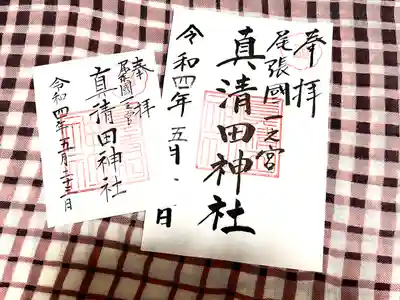 奉拝
尾張國一之宮
真清田神社
令和四年 五月 日
奉拝
尾張國一之宮
真清田神社
令和四年五月二十日